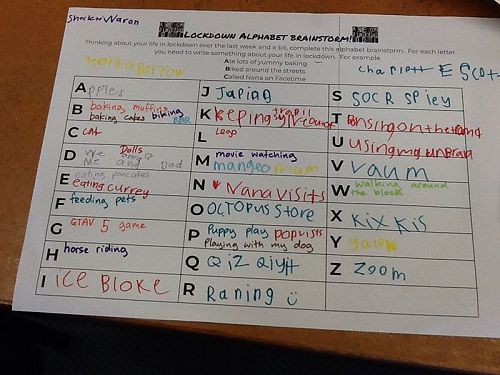 Sharktor Waran
LOCKDOWN ALPHABET BRAINSTORM!
Thinking about your life in lockdown over the last week and a bit, complete this alphabet brainstorm. For each letter
you need to write something about your life in lockdown. For example
Ate lots of yummy baking
Biked around the streets
Called Nana on Facetime
georgia Farrow
A pples
B baking muffins
baking cakes biking BBQ
C cat
D We Dolls
Me and Dad
E eating pancakes
Eating currey
F feeding pets
G GTAV 5 game
H horse riding
I ICE BLOKE
J Japing
K Keping
L Leap
M movie watching
mangeo
N Nana visits
O OCTOPUS Store
P Puppy play popuists
Playing with my dog
Q QiZ Qiyit
R Raning
S SOCR SPiey
T
U Using my un Brain
V Vaum
W Walking around
the block
X KiX Kis
Y
Z Zoom